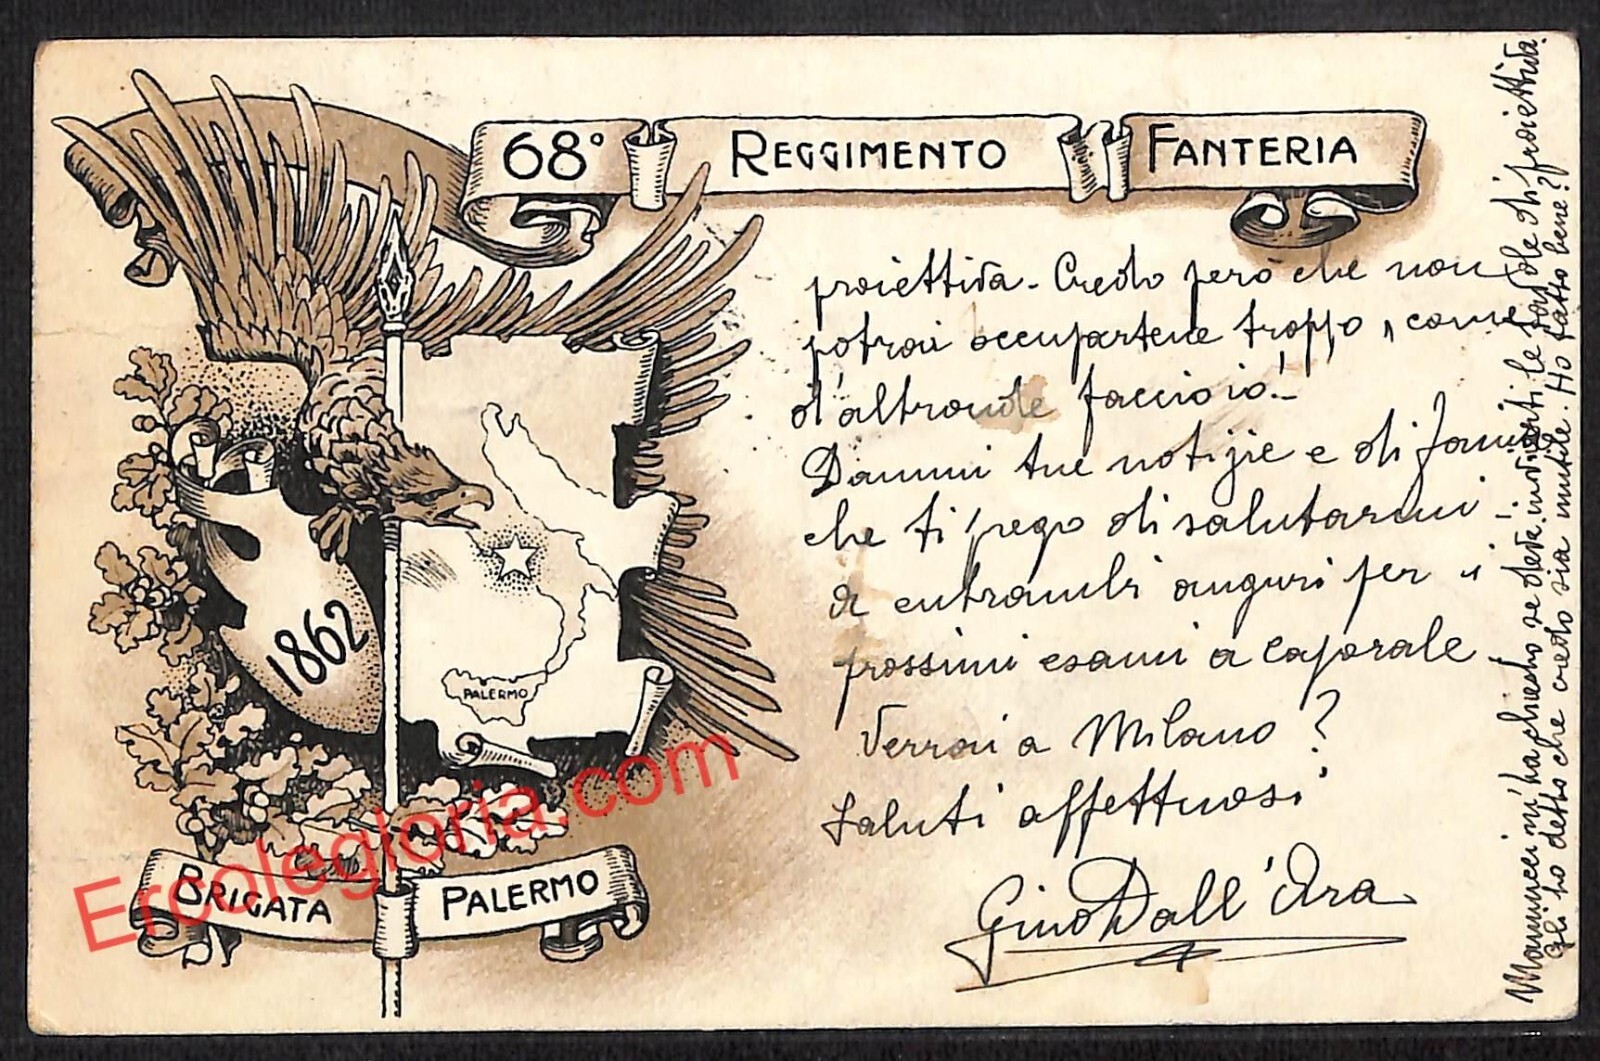 68° REGGIMENTO FANTERIA
proiettiva - Credo però che non
potrai occupartene troppo, come
d'altronde faccio io! -
Dammi tue notizie e di
che ti prego di salutarmi
a entrambi auguri per i
prossimi esami a caporale
Verrai a Milano?
Saluti affettuosi
Gino Dall'Ara
Mannucci m'ha chiesto se deve inviarti le tavole di proiettiva.
Gli ho detto che credo sia inutile. Ho fatto bene?
1862
PALERMO
BRIGATA PALERMO
Ercolegloria.com